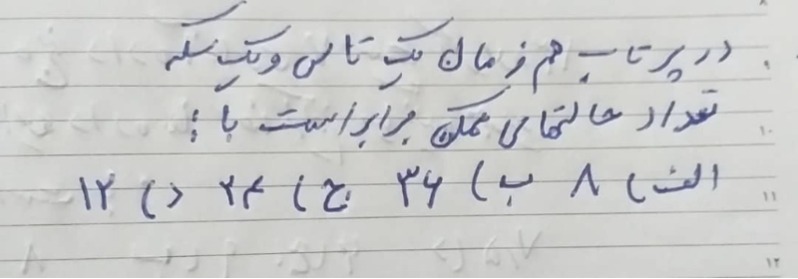 در پرتاب هم زمان یک تاس و یک سکه
تعداد حالتهای ممکن برابر است با :
الف) ۸ ب) ۳۶ ج) ۲۴ د) ۱۲
۱۰
۱۱
۱۲